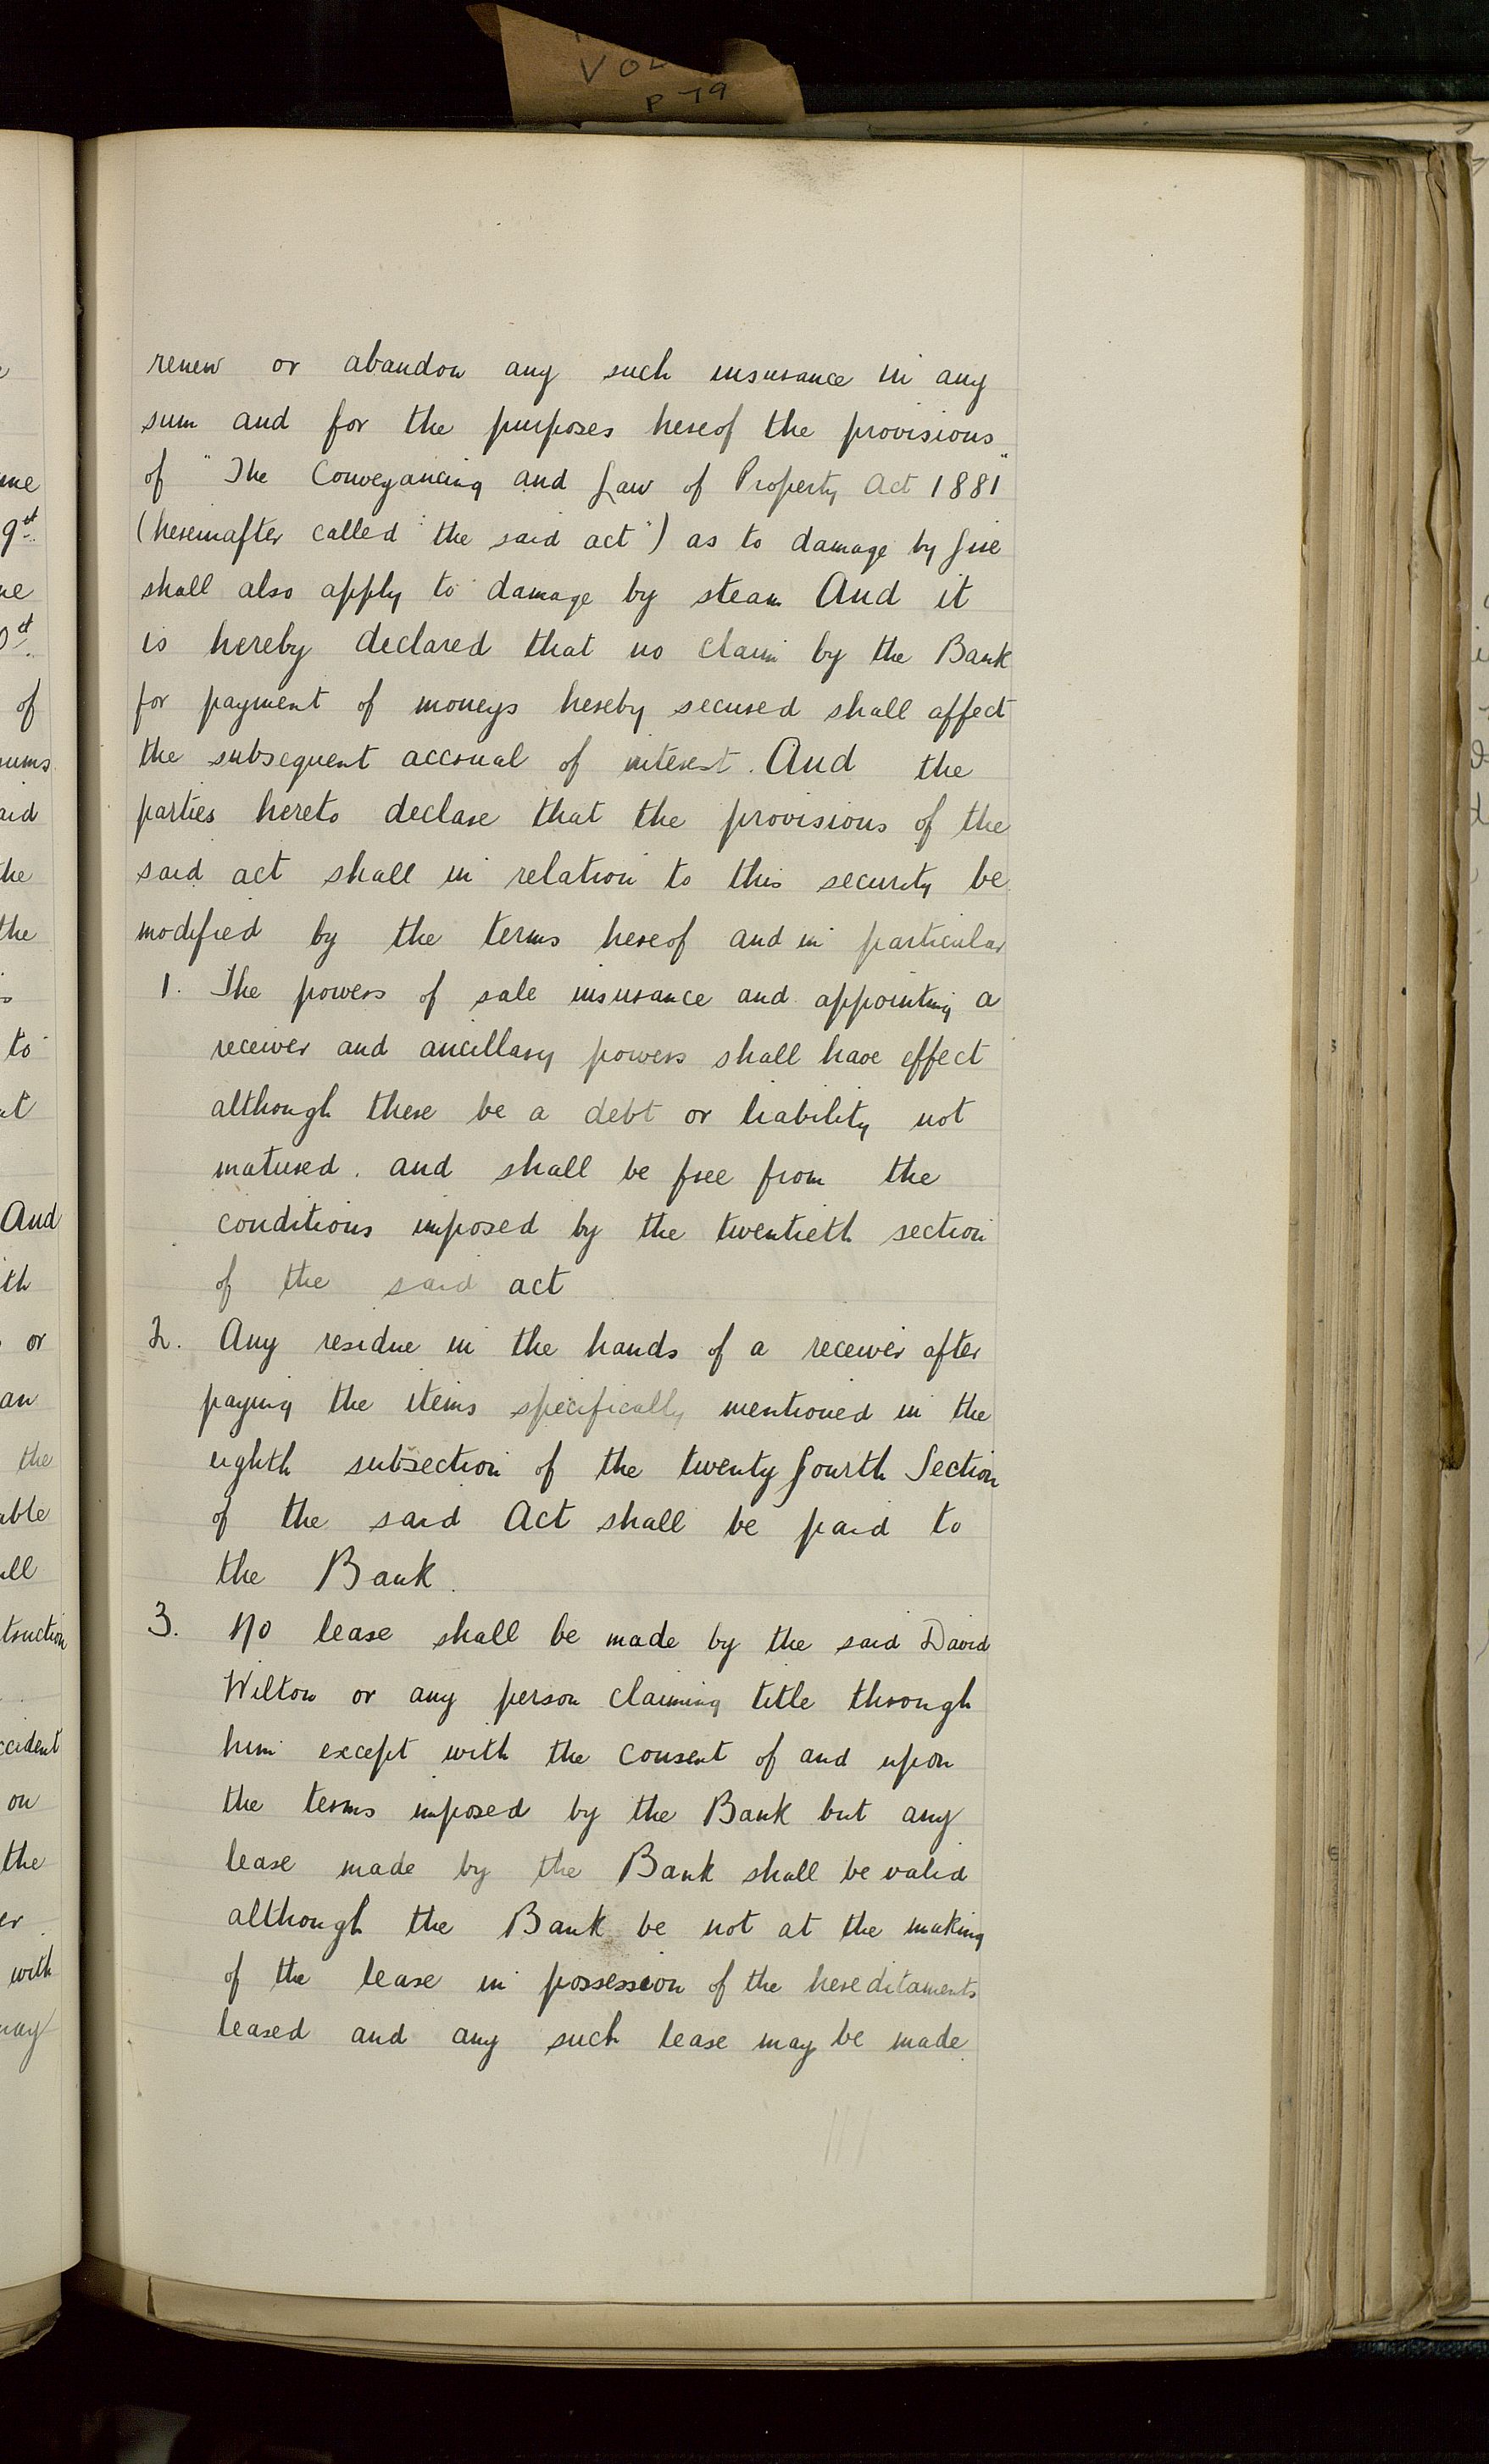 VOL
P 79
renew or abandon any such insurance in any
sum and for the purposes hereof the provisions
of "The Conveyancing and Law of Property Act 1881"
(hereinafter called "the said act") as to damage by fire
shall also apply to damage by steam And it
is hereby declared that no claim by the Bank
for payment of moneys hereby secured shall affect
the subsequent accrual of interest. And the
parties hereto declare that the provisions of the
said act shall in relation to this security be
modified by the terms hereof and in particular
1. The powers of sale insurance and appointing a
receiver and ancillary powers shall have effect
although there be a debt or liability not
matured. and shall be free from the
conditions imposed by the twentieth section
of the said act
2. Any residue in the hands of a receiver after
paying the items specifically mentioned in the
eighth subsection of the twenty fourth Section
of the said Act shall be paid to
the Bank.
3. No lease shall be made by the said David
Wilton or any person claiming title through
him except with the consent of and upon
the terms imposed by the Bank but any
lease made by the Bank shall be valid
although the Bank be not at the making
of the lease in possession of the hereditaments
leased and any such lease may be made